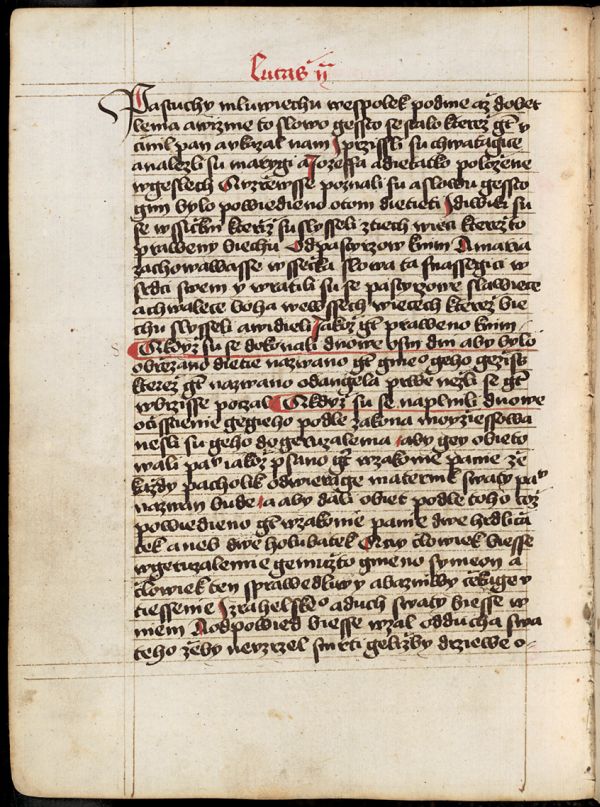 Lucas ij
Pastuchy mluwiechu wespolek podme až dobet
lema a wizme to slowo gessto se stalo kterež gt v
cinil pan a vkazal nam J przissli su chwatagice
a nalezli su marygi a Jozeffa a dietatko položene
w geslech A vzrzewsse poznali su a slowu gessto
gim bylo powiedieno o tom dietieti J diwili su
se wssickni kterziž su slysseli z tiech wieci kterež to
praweny biechu Od pastyrzow k nim A maria
zachowawasse wssecka slowa ta snassegici w
srdci swem y wratili su se pastyrzowe slawiece
a chwalece boha we wssech wiecech kterež bie
chu slysseli a widieli Jakož gt praweno k nim
A když su se dokonali dnowe osm dni aby bylo
obrzezano dietie nazwano gt gmeo geho gežiss
kterež gt nazwano od angela prwe nežli se gt
w brzisse poczal A když su se naplnili dnowe
ocisstienie gegieho podle zakona moyziessowa
nesli su geho do geruzalema aby gey obieto
wali panu iakož psano gt w zakonie panie že
každy pacholik odwieragie maternik swaty panu
nazwan bude a aby dali obiet podle toho což
powiedieno gt w zakonie panie dwe hrdlicz
cek aneb dwe holubatek A ay clowiek biesse
w geruzalemie gemužto gmeno symeon a
clowiek ten sprawedliwy a bazniwy cžekage v
tiessenie Izrahelskeo a duch swaty biesse w
niem A odpowied biesse wzal od ducha swa
teho žeby nevzrzel smrti geližby drziewe o-